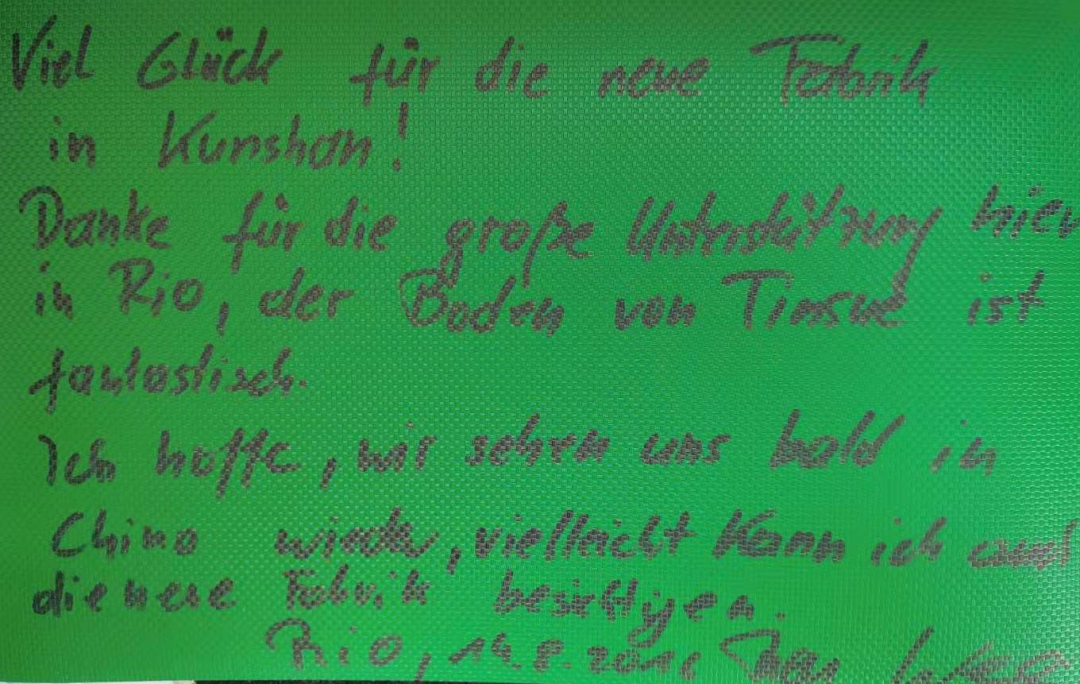 Viel Glück für die neue Fabrik
in Kunshan!
Danke für die große Unterstützung hier
in Rio, der Boden von Tinsue ist
fantastisch.
Ich hoffe, wir sehen uns bald in
China wieder, vielleicht kann ich
die neue Fabrik besichtigen.
Rio, 14.8.2016